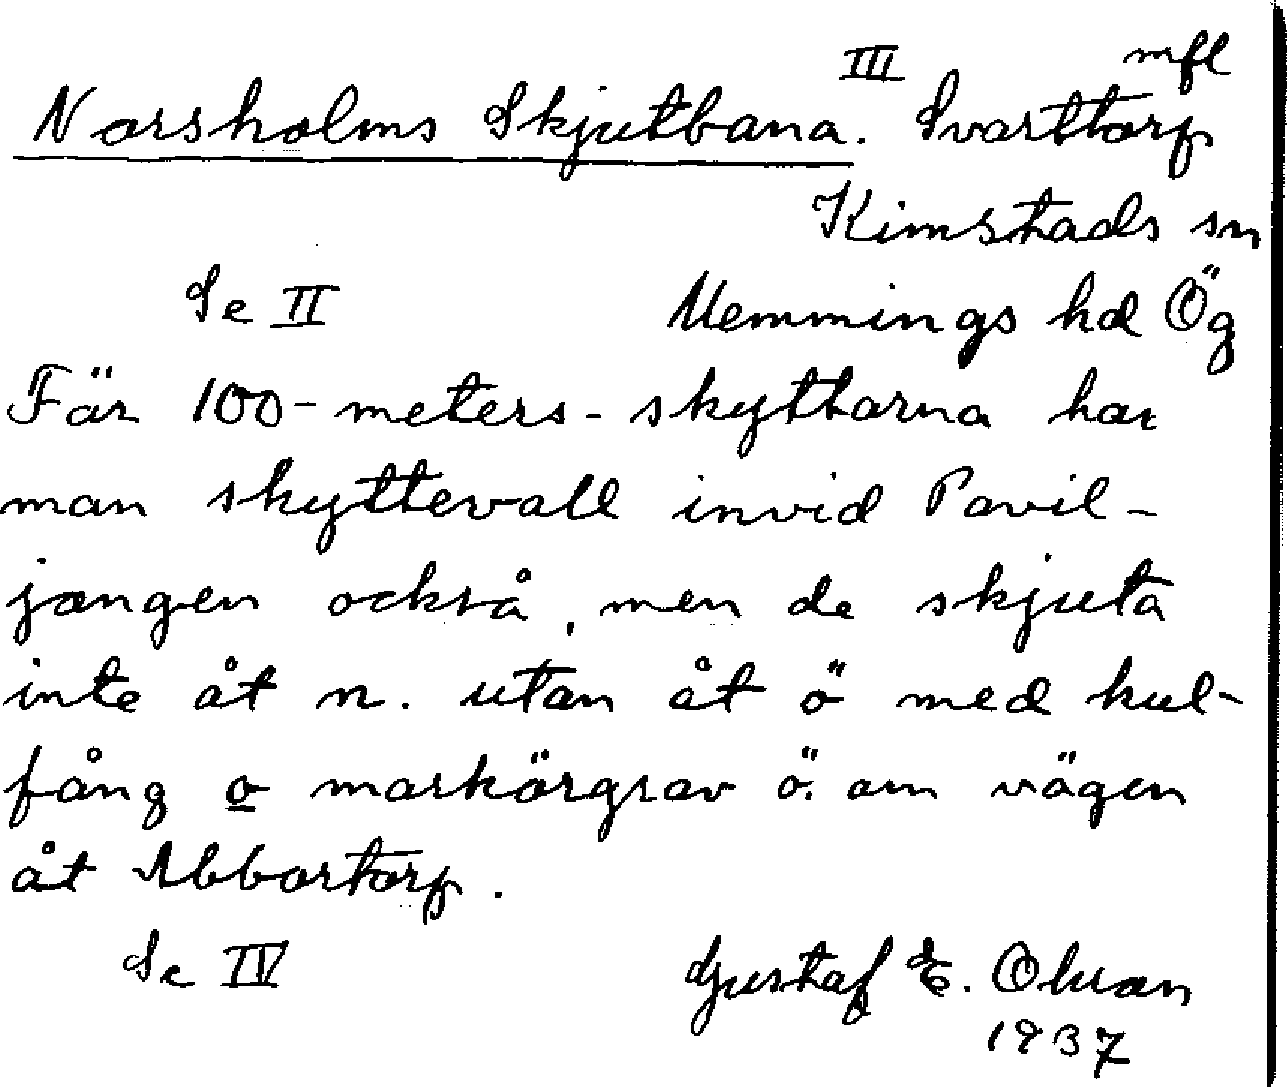 III mfl
Norsholms Skjutbana. Svarttorp
Kimstads sn
Se II Memmings hd Ög
För 100-meters-skyttarna har
man skyttevall invid Pavil-
jongen också, men de skjuta
inte åt n. utan åt ö med kul-
fång o markörgrav ö. om vägen
åt Abbortorp.
Se IV Gustaf E. Olsson
1937